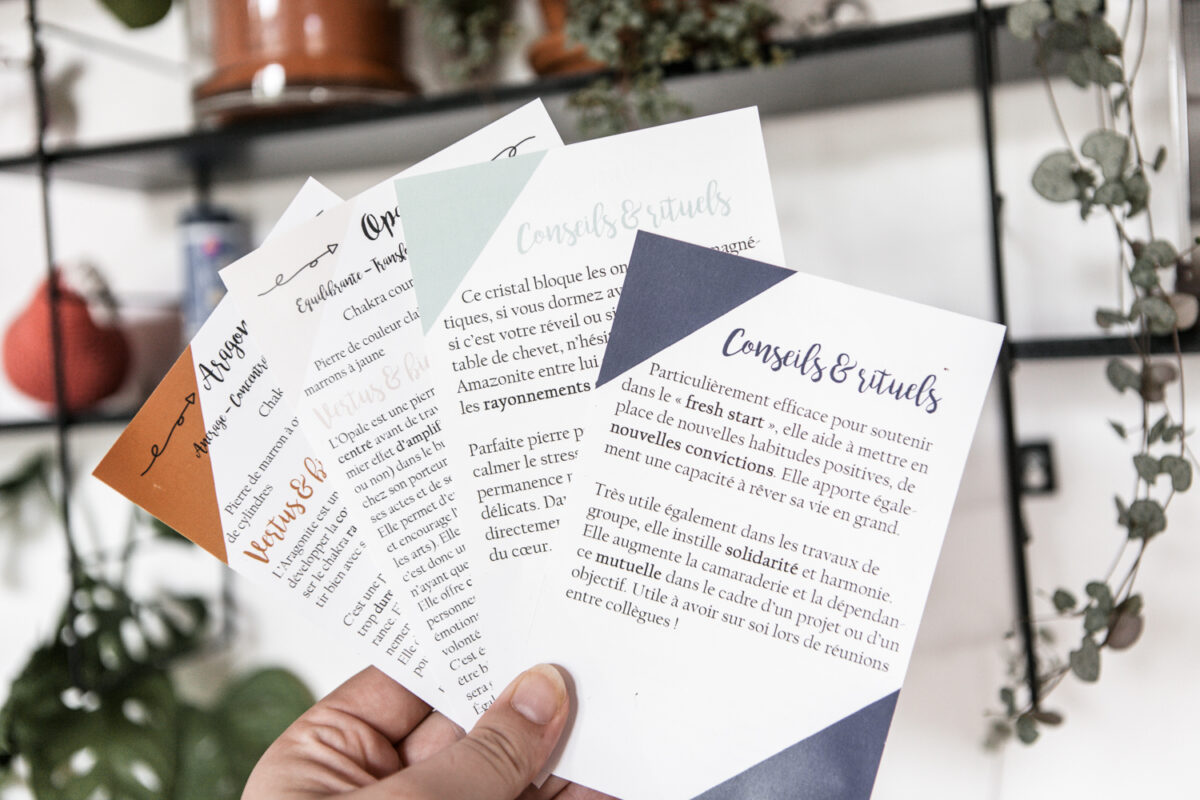 Aragon
Ancrage - Concentr
Chak
Pierre de marron à o
de cylindres
Vertus & bi
L'Aragonite est un
développer la co
ser le chakra r
tir bien avec s
C'est une
trop dure
rance. l'
nemer
Elle
po
Opa
Equilibrante - Transfo
Chakra cour
Pierre de couleur clai
marrons à jaune
Vertus & bi
L'Opale est une pierre
centré avant de tra
mier effet d'amplif
ou non) dans le b
chez son porteur
ses actes et de s
Elle permet d'e
et encourage l
les arts). Elle
c'est donc un
n'ayant que
Elle offre
personne
émotion
volonté
C'est é
être b
sera
Éga
Conseils & rituels
Ce cristal bloque les on magné-
tiques, si vous dormez av
si c'est votre réveil ou si
table de chevet, n'hési
Amazonite entre lui
les rayonnements
Parfaite pierre p
calmer le stress
permanence
délicats. Da
directemer
du cœur.
Conseils & rituels
Particulièrement efficace pour soutenir
dans le « fresh start », elle aide à mettre en
place de nouvelles habitudes positives, de
nouvelles convictions. Elle apporte égale-
ment une capacité à rêver sa vie en grand.
Très utile également dans les travaux de
groupe, elle instille solidarité et harmonie.
Elle augmente la camaraderie et la dépendan-
ce mutuelle dans le cadre d'un projet ou d'un
objectif. Utile à avoir sur soi lors de réunions
entre collègues !